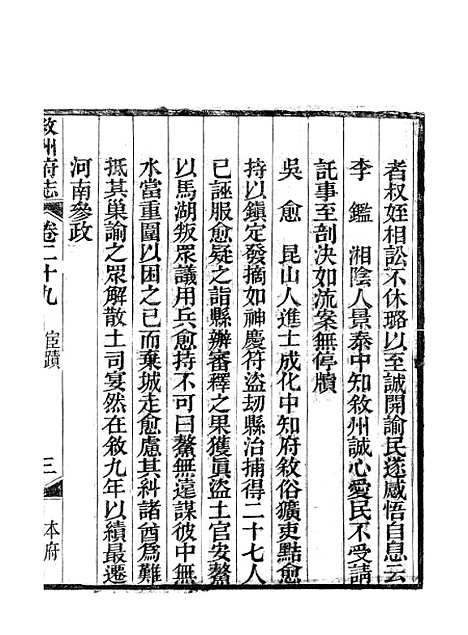 者叔姪相訟不休璐以至誠開諭民遂感悟自息云
李鑑　湘陰人景泰中知敘州誠心愛民不受請
託事至剖決如流案無停牘
吳愈　昆山人進士成化中知府敘俗獷吏黠愈
持以鎮定發摘如神慶符盜刧縣治捕得二十七人
已誣服愈疑之詣縣辦審釋之果獲眞盜土官安鰲
以馬湖叛眾議用兵愈持不可曰鰲無遠謀彼中無
水當重圍以困之已而棄城走愈慮其糾諸酋爲難
抵其巢諭之眾解散土司宴然在敘九年以績最遷
河南參政
敘州府志　卷二十九　宦蹟　三　本府